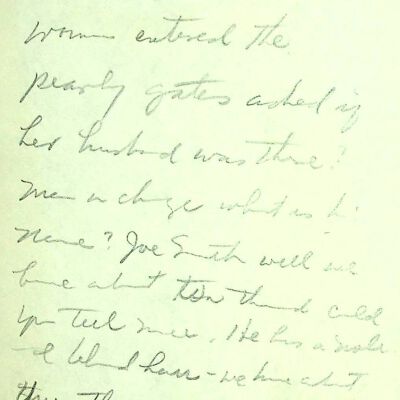 women entered the
pearly gates asked if
her husband was there?
Man in charge what is his
name? Joe Smith well we
have about ten thousand could
you tell more. He has a mole
blond hair - we have about
three th